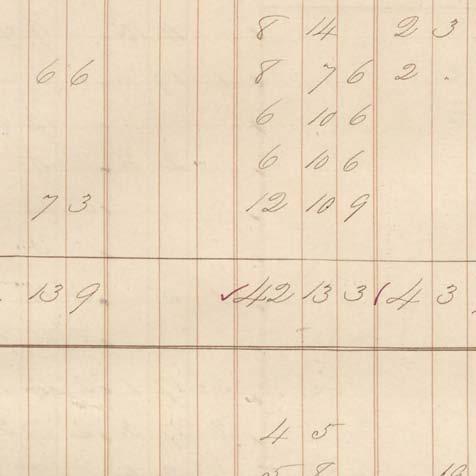 8 14 2 3
6 6 8 7 6 2 .
6 10 6
6 10 6
7 3 12 10 9
13 9 ✓42 13 3 4 3
4 5
5 8